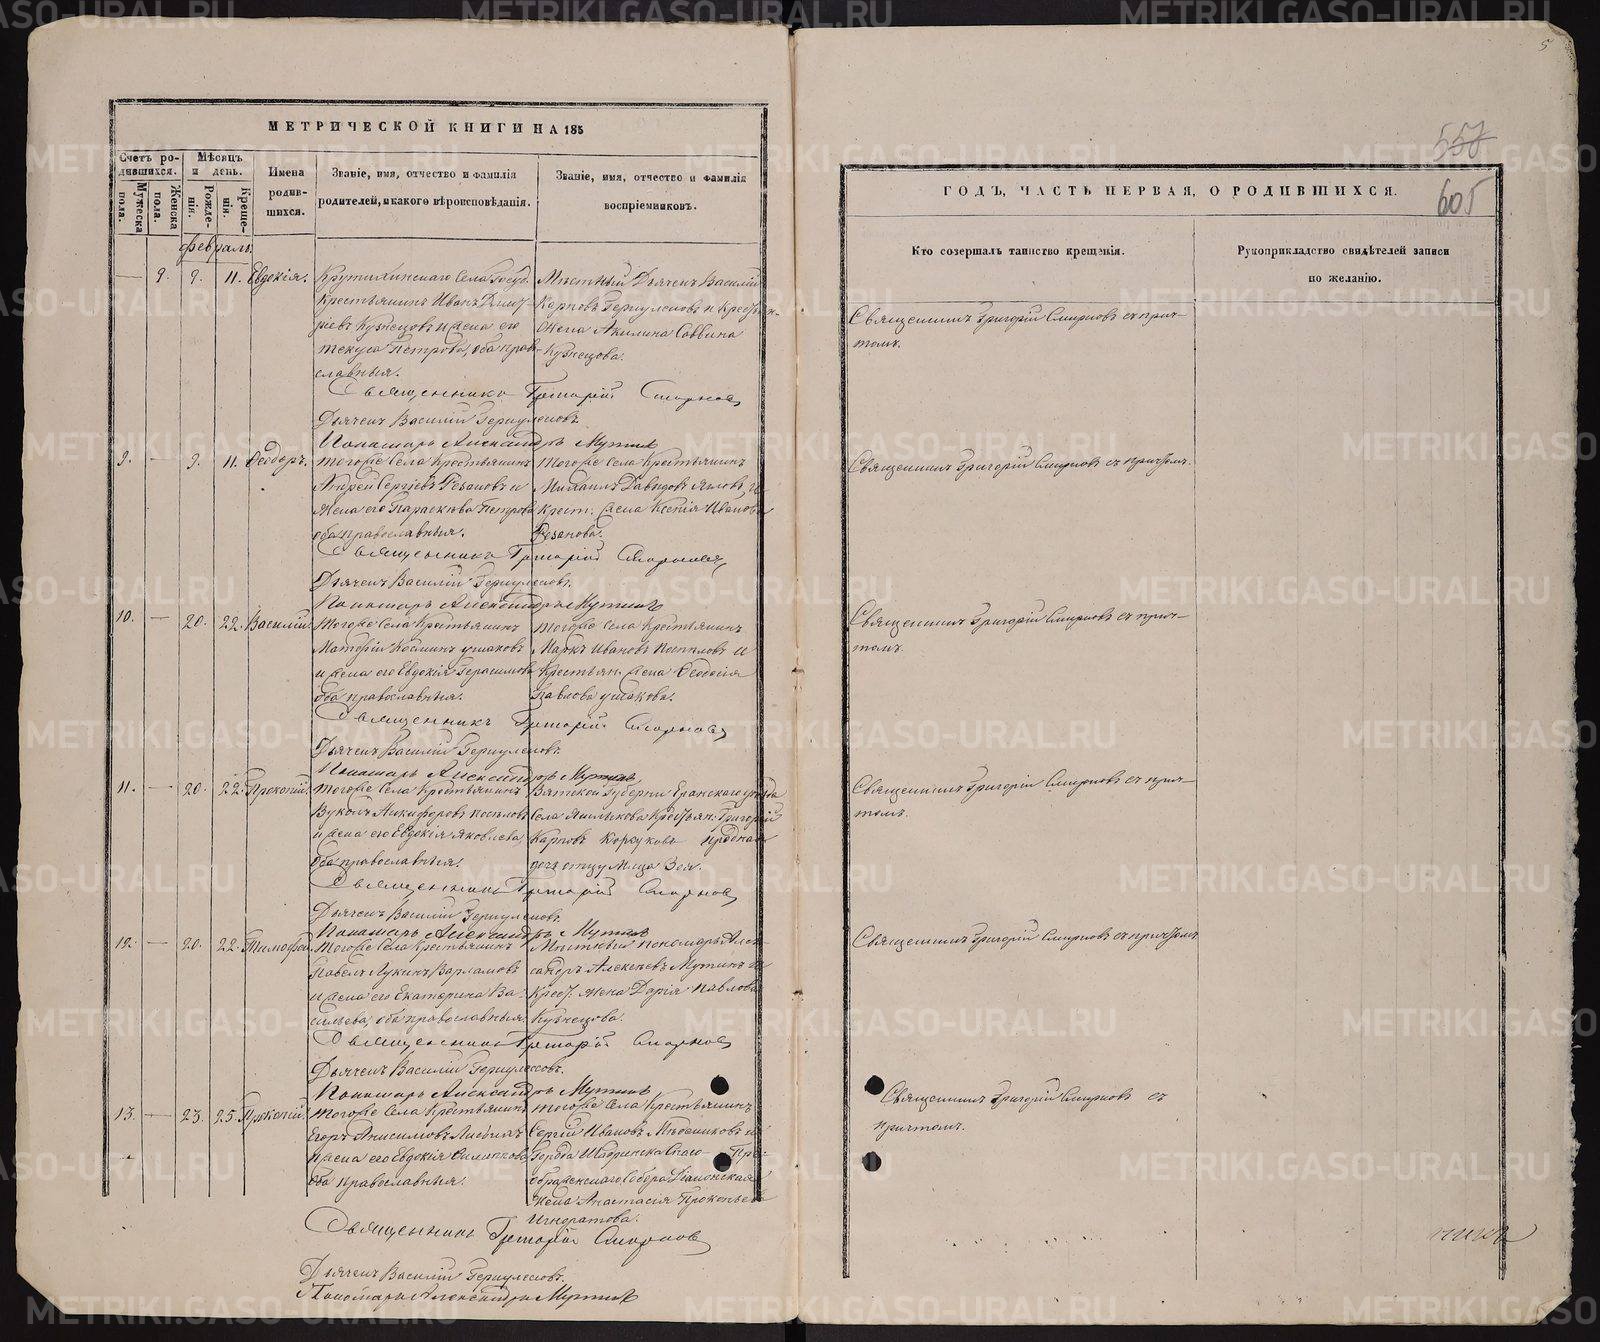 МЕТРИЧЕСКОЙ КНИГИ НА 185
Счетъ ро-
дившихся.
Мѣсяцъ
и день.
Мужеска
пола.
Женска
пола.
Рожде-
нія.
Креще-
нія.
Имена
родив-
шихся.
Званіе, имя, отчество и фамилія
родителей, и какого вѣроисповѣданія.
Званіе, имя, отчество и фамилія
воспріемниковъ.
февраль
9. 9. 11. Евдокія.
Крутихинскаго Села Госуд.
Крестьянинъ Иванъ Дмит-
ріевъ Кузнецовъ и жена его
Петрова, оба право-
славныя.
Мѣстный Дьячекъ Василій
Карповъ Геркулесовъ и Крестьян.
жена Акилина Саввина
Кузнецова.
Священникъ Григорій Смирновъ
Дьячекъ Василій Геркулесовъ.
Пономарь Александръ Мутинъ
9. — 9. 11. Ѳеодоръ.
Тогоже Села Крестьянинъ
Андрей Сергіевъ Резановъ и
жена его Параскева Петрова
оба православныя.
Тогоже Села Крестьянинъ
Михаилъ Давыдовъ и
Крест. жена Ксенія Иванова
Резанова.
Священникъ Григорій Смирновъ
Дьячекъ Василій Геркулесовъ.
Пономарь Александръ Мутинъ
10. — 20. 22. Василій.
Тогоже Села Крестьянинъ
Козминъ Ушаковъ
и жена его Евдокія Герасимова
оба православныя.
Тогоже Села Крестьянинъ
Маркъ Ивановъ Поспѣловъ и
Крестьян. жена Ѳеодосія
Павлова Ушакова.
Священникъ Григорій Смирновъ
Дьячекъ Василій Геркулесовъ.
Пономарь Александръ Мутинъ
11. — 20. 22. Прокопій.
Тогоже Села Крестьянинъ
Вуколъ Никифоровъ Поспѣловъ
и жена его Евдокія Яковлева
оба православныя.
Вятской Губерніи Яранскаго уѣзда
Села Крестьян. Григорій
Карповъ
Священникъ Григорій Смирновъ
Дьячекъ Василій Геркулесовъ.
Пономарь Александръ Мутинъ
12. — 20. 22. Тимофей.
Тогоже Села Крестьянинъ
Павелъ Лукинъ Варламовъ
и жена его Екатерина Ва-
сильева, оба православныя.
Мѣстный пономарь Алек-
сандръ Алексѣевъ Мутинъ и
Крест. жена Дарія Павлова
Кузнецова.
Священникъ Григорій Смирновъ
Дьячекъ Василій Геркулесовъ.
Пономарь Александръ Мутинъ
13. — 23. 25. Прокопій.
Тогоже Села Крестьянинъ
Егоръ Анисимовъ
и жена его Евдокія
оба православныя.
Тогоже Села Крестьянинъ
Сергій Ивановъ и
Города Шадринска Спасо-Пре-
ображенскаго Собора
жена Анастасія Прокопьева
Игноратова.
Священникъ Григорій Смирновъ
Дьячекъ Василій Геркулесовъ.
Пономарь Александръ Мутинъ
5
605
ГОДЪ, ЧАСТЬ ПЕРВАЯ, О РОДИВШИХСЯ.
Кто созершалъ таинство крещенія.
Рукоприкладство свидѣтелей записи
по желанію.
Священникъ Григорій Смирновъ съ прич-
томъ.
Священникъ Григорій Смирновъ съ причтомъ.
Священникъ Григорій Смирновъ съ прич-
томъ.
Священникъ Григорій Смирновъ съ прич-
томъ.
Священникъ Григорій Смирновъ съ причтомъ.
Священникъ Григорій Смирновъ съ
причтомъ.
METRIKI.GASO-URAL.RU